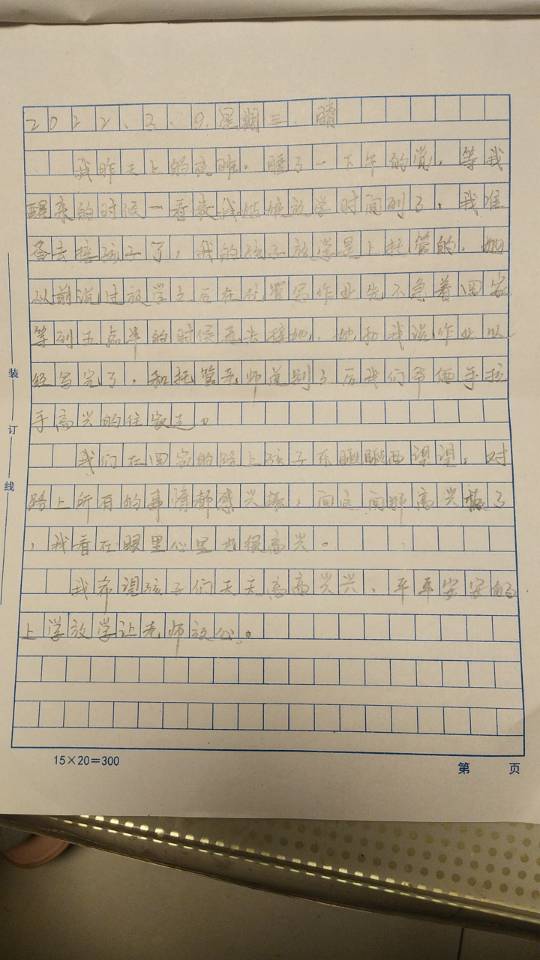 2022.3.9.星期三.晴
我昨天上的夜班。睡了一下午的觉，等我
醒来的时候一看表我估摸放学时间到了，我准
备去接孩子了，我的孩子放学是上托管的，她
以前说过放学之后在托管写作业先不急着回家
等到五点半的时候再去接她，她和我说作业以
经写完了，和托管老师道别之后我们俩手拉
手高兴的往家走。
我们在回家的路上孩子东瞅瞅西望望，对
路上所有的事情都感兴趣，问这问那高兴极了
，我看在眼里心里也很高兴。
我希望孩子们天天高高兴兴、平平安安的
上学放学让老师放心。
装
订
线
15×20=300
第 页